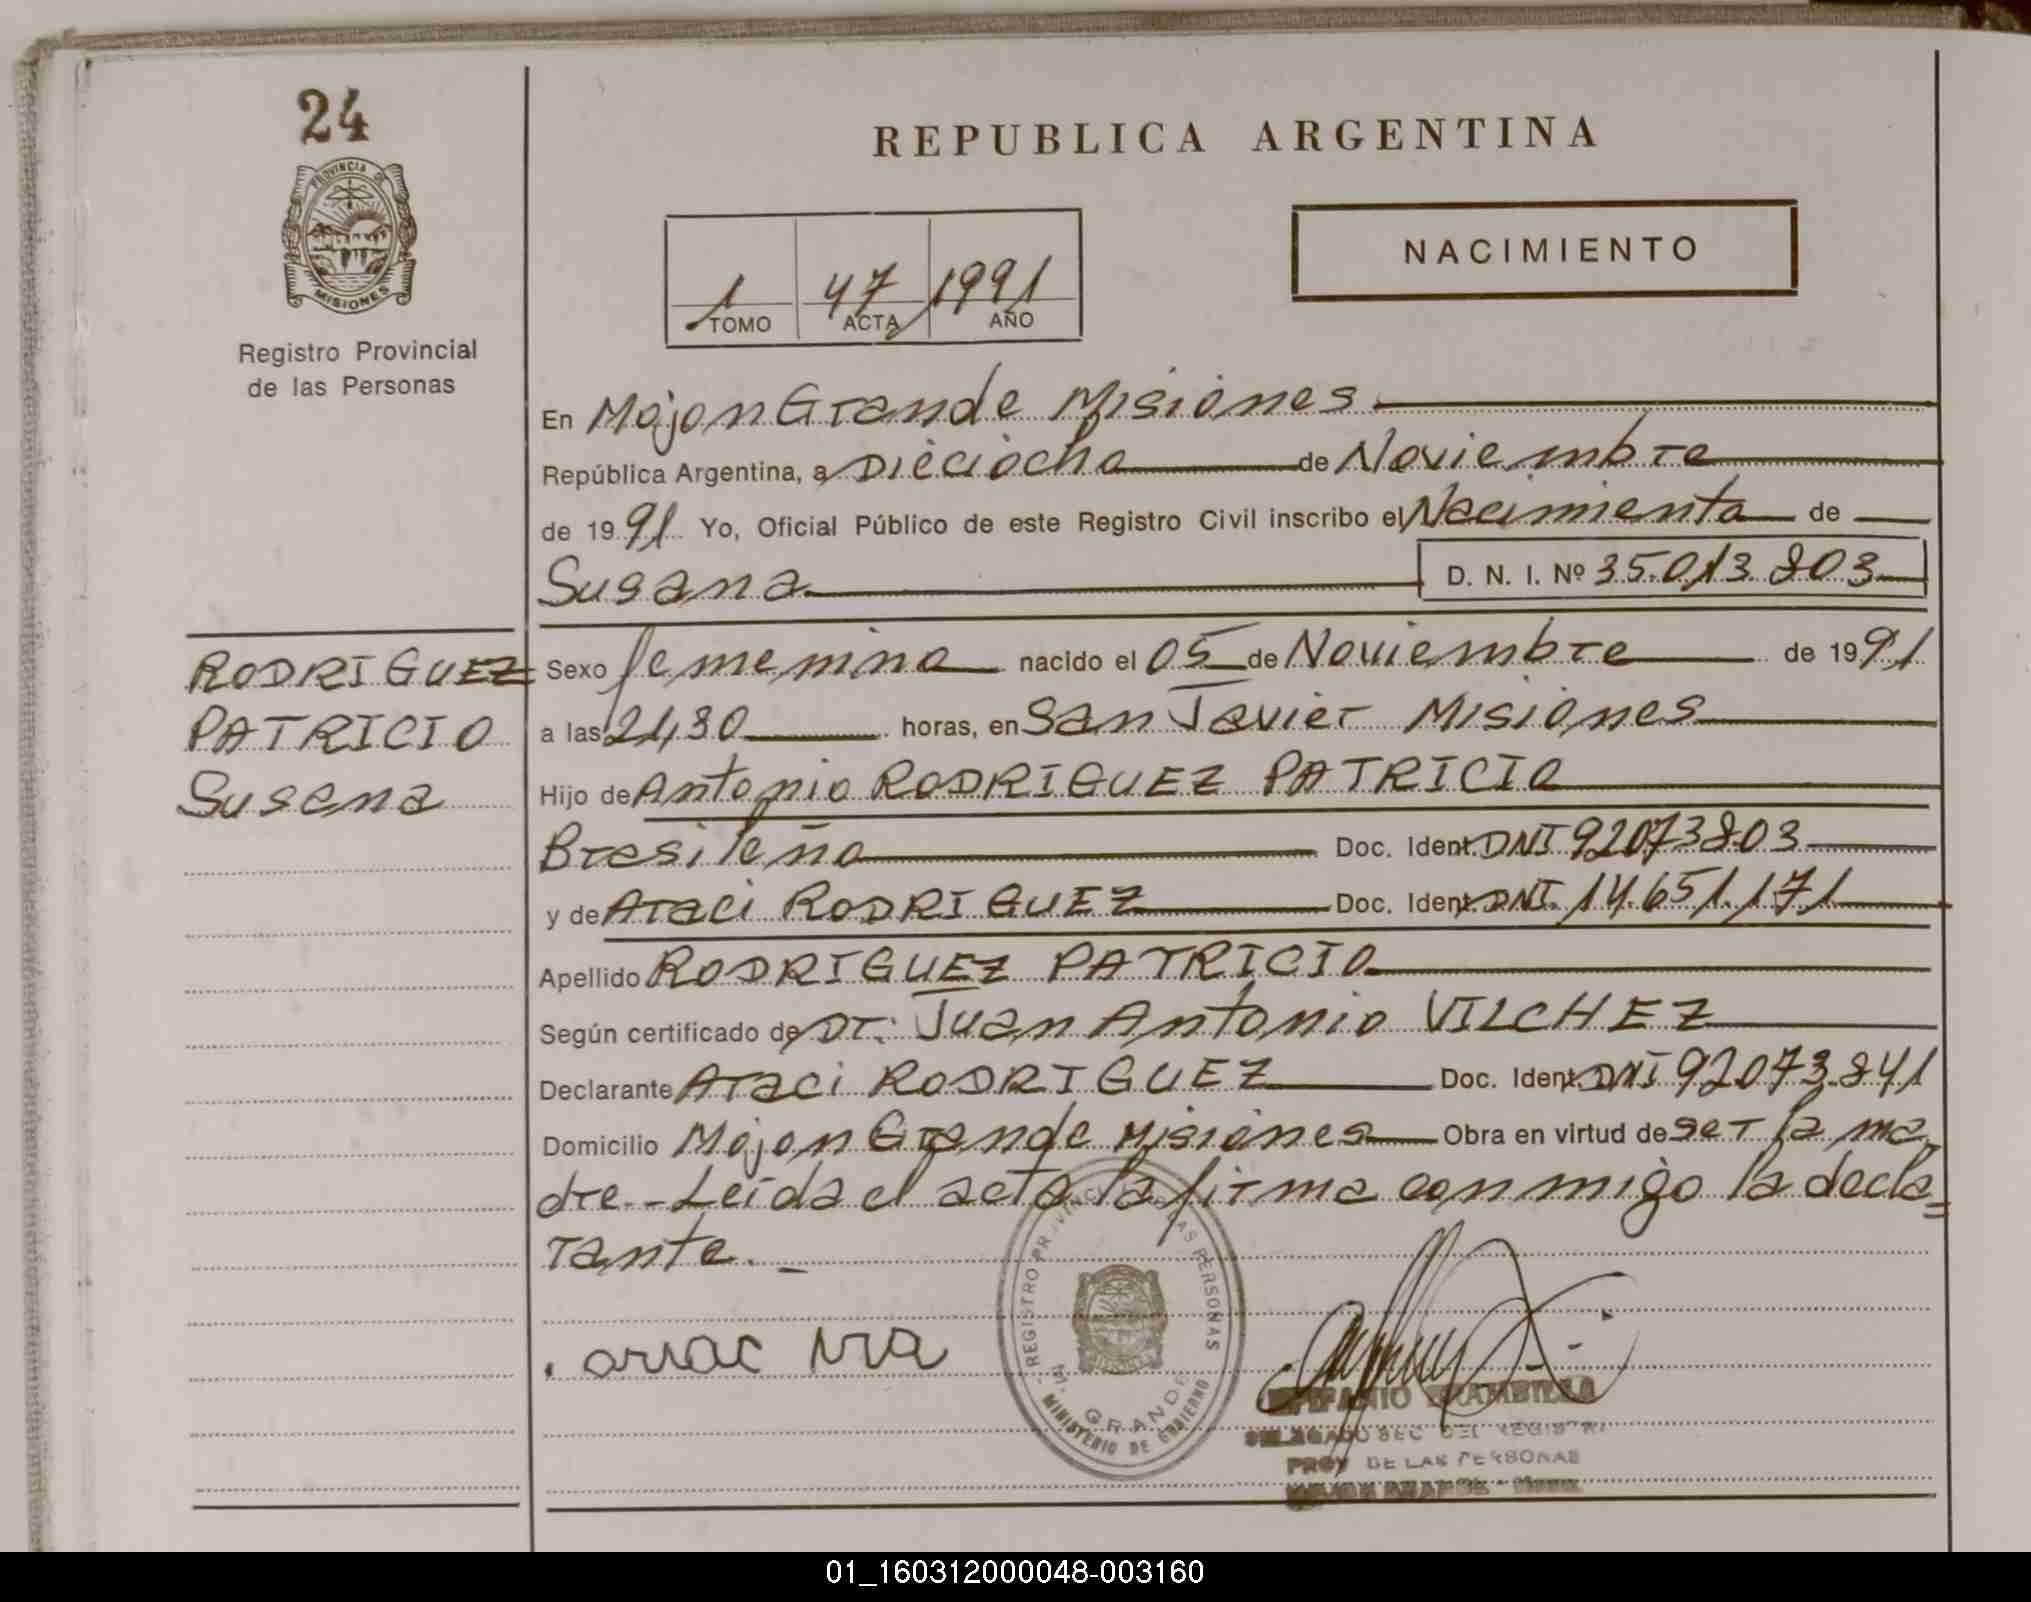 24
PROVINCIA DE
MISIONES
Registro Provincial
de las Personas
REPUBLICA ARGENTINA
NACIMIENTO
1 47 1991
TOMO ACTA AÑO
En Mojon Grande Misiones
República Argentina, a Dieciocho de Noviembre
de 1991 Yo, Oficial Público de este Registro Civil inscribo el Nacimiento de
Susana D. N. I. Nº 35.013.803
RODRIGUEZ
PATRICIO
Susana
Sexo femenino nacido el 05 de Noviembre de 1991
a las 21,30 horas, en San Javier Misiones
Hijo de Antonio RODRIGUEZ PATRICIO
Brasileño Doc. Ident. DNI 92073803
y de Araci RODRIGUEZ Doc. Ident. DNI. 14.651.171
Apellido RODRIGUEZ PATRICIO
Según certificado de Dr. Juan Antonio VILCHEZ
Declarante Araci RODRIGUEZ Doc. Ident. DNI 92073841
Domicilio Mojon Grande Misiones Obra en virtud de ser la ma
dre.- Leida el acta la firma conmigo la decla=
rante.-
REGISTRO PROVINCIAL DE LAS PERSONAS
M. GRANDE
MINISTERIO DE GOBIERNO
DELEGADO SEC DEL REGISTRO
PROV DE LAS PERSONAS
01_160312000048-003160